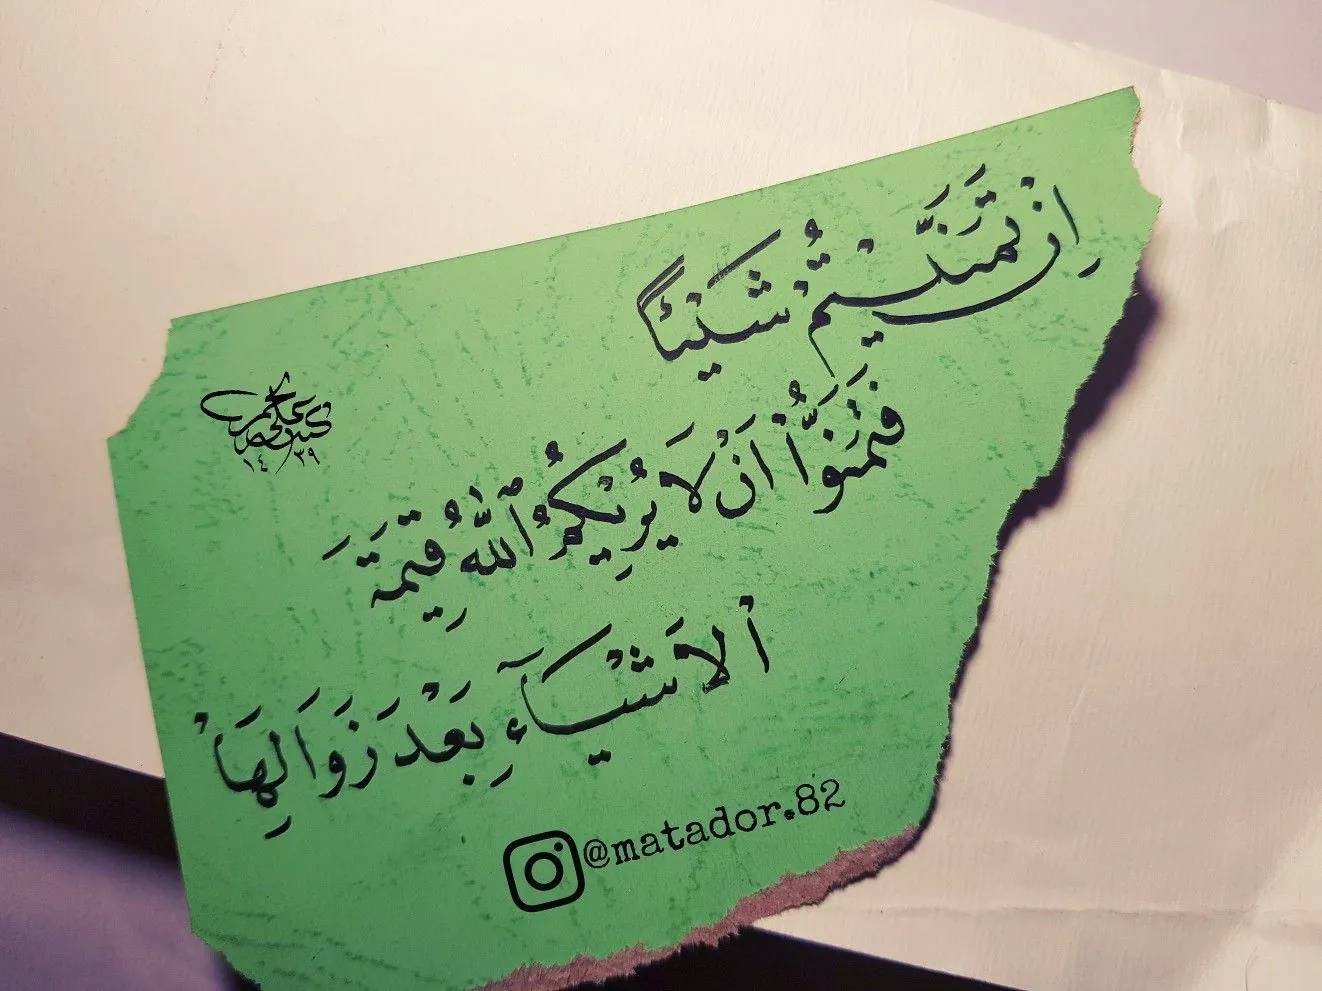 اِنْ تَمَنَّيْتُمْ شَيْئاً
فَتَمَنَّوُا اَنْ لَا يُرِيَكُمُ ٱللّٰهُ قِيمَةَ
اْلاَشْيَآءِ بَعْدَ زَوَالِهَا
١٤٣٩
@matador.82